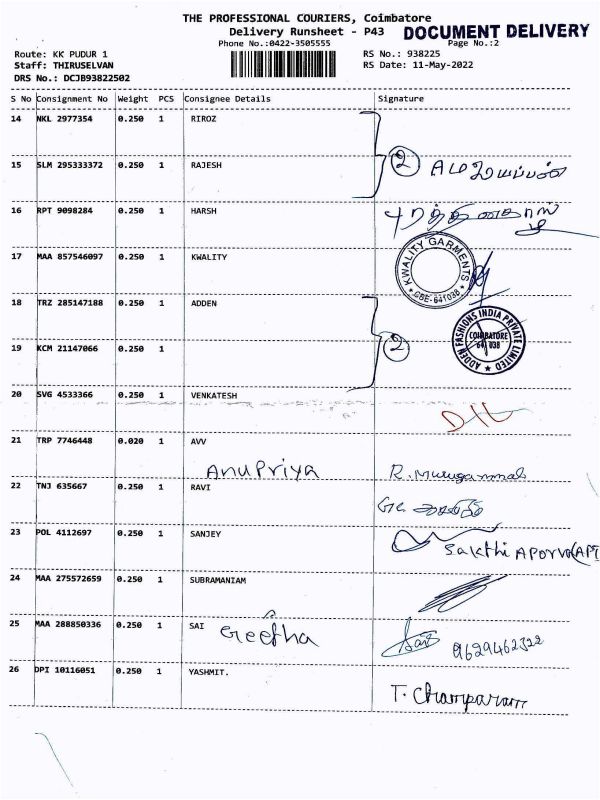 THE PROFESSIONAL COURIERS, Coimbatore
Delivery Runsheet - P43
DOCUMENT DELIVERY
Phone No.:0422-3505555
Page No.:2
Route: KK PUDUR 1
RS No.: 938225
Staff: THIRUSELVAN
RS Date: 11-May-2022
DRS No.: DCJB93822502
S No Consignment No Weight PCS Consignee Details Signature
14 NKL 2977354 0.250 1 RIROZ
15 SLM 295333372 0.250 1 RAJESH
2
16 RPT 9098284 0.250 1 HARSH
17 MAA 857546097 0.250 1 KWALITY
KWALITY GARMENTS
CBE-641038
18 TRZ 285147188 0.250 1 ADDEN
ADDEN FASHIONS INDIA PRIVATE LIMITED
COIMBATORE
641 038
19 KCM 21147066 0.250 1
2
20 SVG 4533366 0.250 1 VENKATESH
21 TRP 7746448 0.020 1 AVV
Anupriya R. Murugammal
22 TNJ 635667 0.250 1 RAVI
23 POL 4112697 0.250 1 SANJEY
Sakthi APorva(APT
24 MAA 275572659 0.250 1 SUBRAMANIAM
25 MAA 288850336 0.250 1 SAI
Geetha
9629462322
26 DPI 10116051 0.250 1 YASHMIT.
T. Champaram